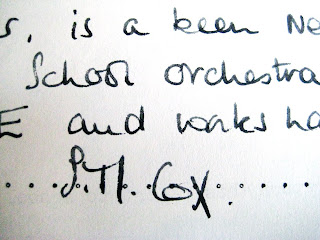 s, is a keen Ne
School orchestra
E and works ha
S.M. Cox.